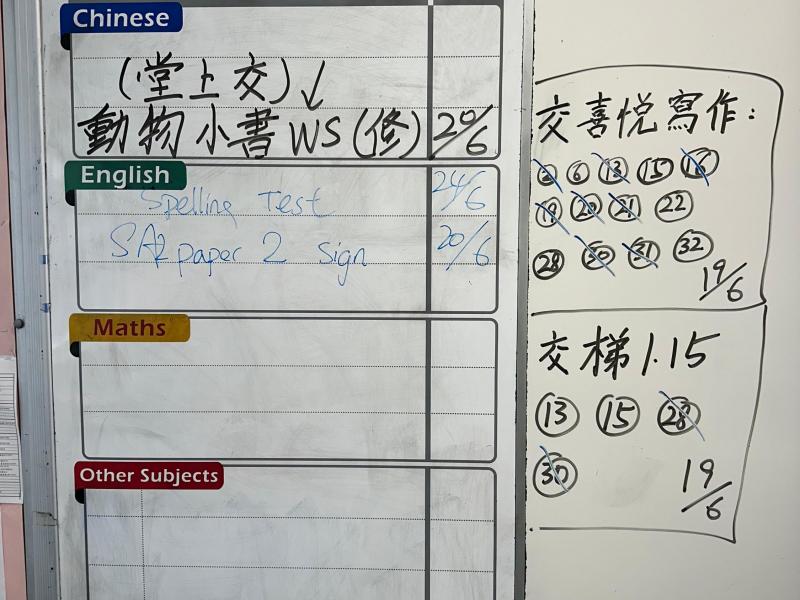 Chinese
(堂上交)↓
動物小書WS(修) 20/6
English
Spelling Test 24/6
SA2 paper 2 sign 20/6
Maths
Other Subjects
交喜悅寫作:
2 6 13 15 16
19 20 21 22
28 30 31 32
19/6
交梯1.15
13 15 28
30
19/6